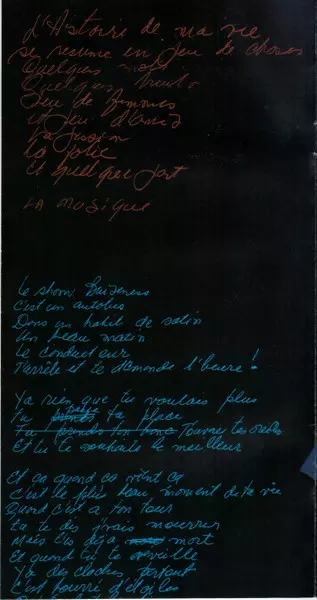 L'Histoire de ma vie
se résume en peu de choses
Quelques mots
Quelques
Peu de femmes
et peu d'amis
La
La folie
Et quelque part
LA MUSIQUE
Le show buizeness
C'est un autobus
Dans un habit de satin
Un beau matin
Le conducteur
T'arrête et te demande l'heure!
Ya rien que tu voulais plus
Tu ta place
Tu prends ton banc Tournes tes
Et tu te souhaite le meilleur
Et ça quand ça vient ça
C'est le plus beau moment de ta vie
Quand c'est a ton tour
Tu te dis j'vais mourrir
Mais t'es déja mort
Et quand tu te reveille
Ya des cloches partout
C'est pourri d'étoiles